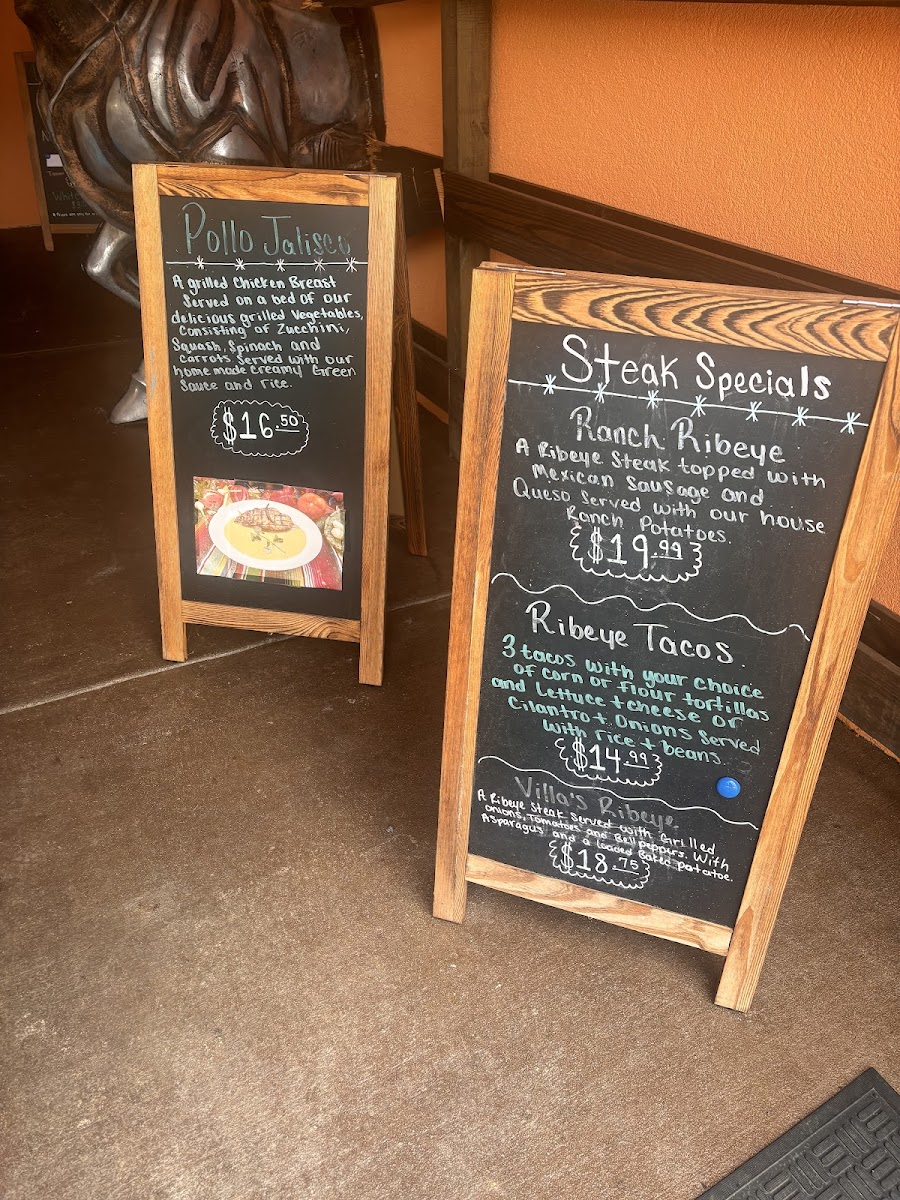 Pollo Jalisco
A grilled Chicken Breast
Served on a bed of our
delicious grilled Vegetables,
Consisting of Zucchini,
Squash, Spinach and
Carrots. Served with our
home made creamy Green
Sauce and rice.
$16.50
Steak Specials
Ranch Ribeye
A Ribeye Steak topped with
Mexican Sausage and
Queso Served with our house
Ranch Potatoes.
$19.99
Ribeye Tacos
3 tacos with your choice
of corn or flour tortillas
and Lettuce + cheese or
Cilantro + Onions Served
with rice + beans.
$14.99
Villa's Ribeye
A Ribeye Steak Served with Grilled
onions, Tomatoes and Bell peppers. With
Asparagus and a loaded Baked potatoe.
$18.75